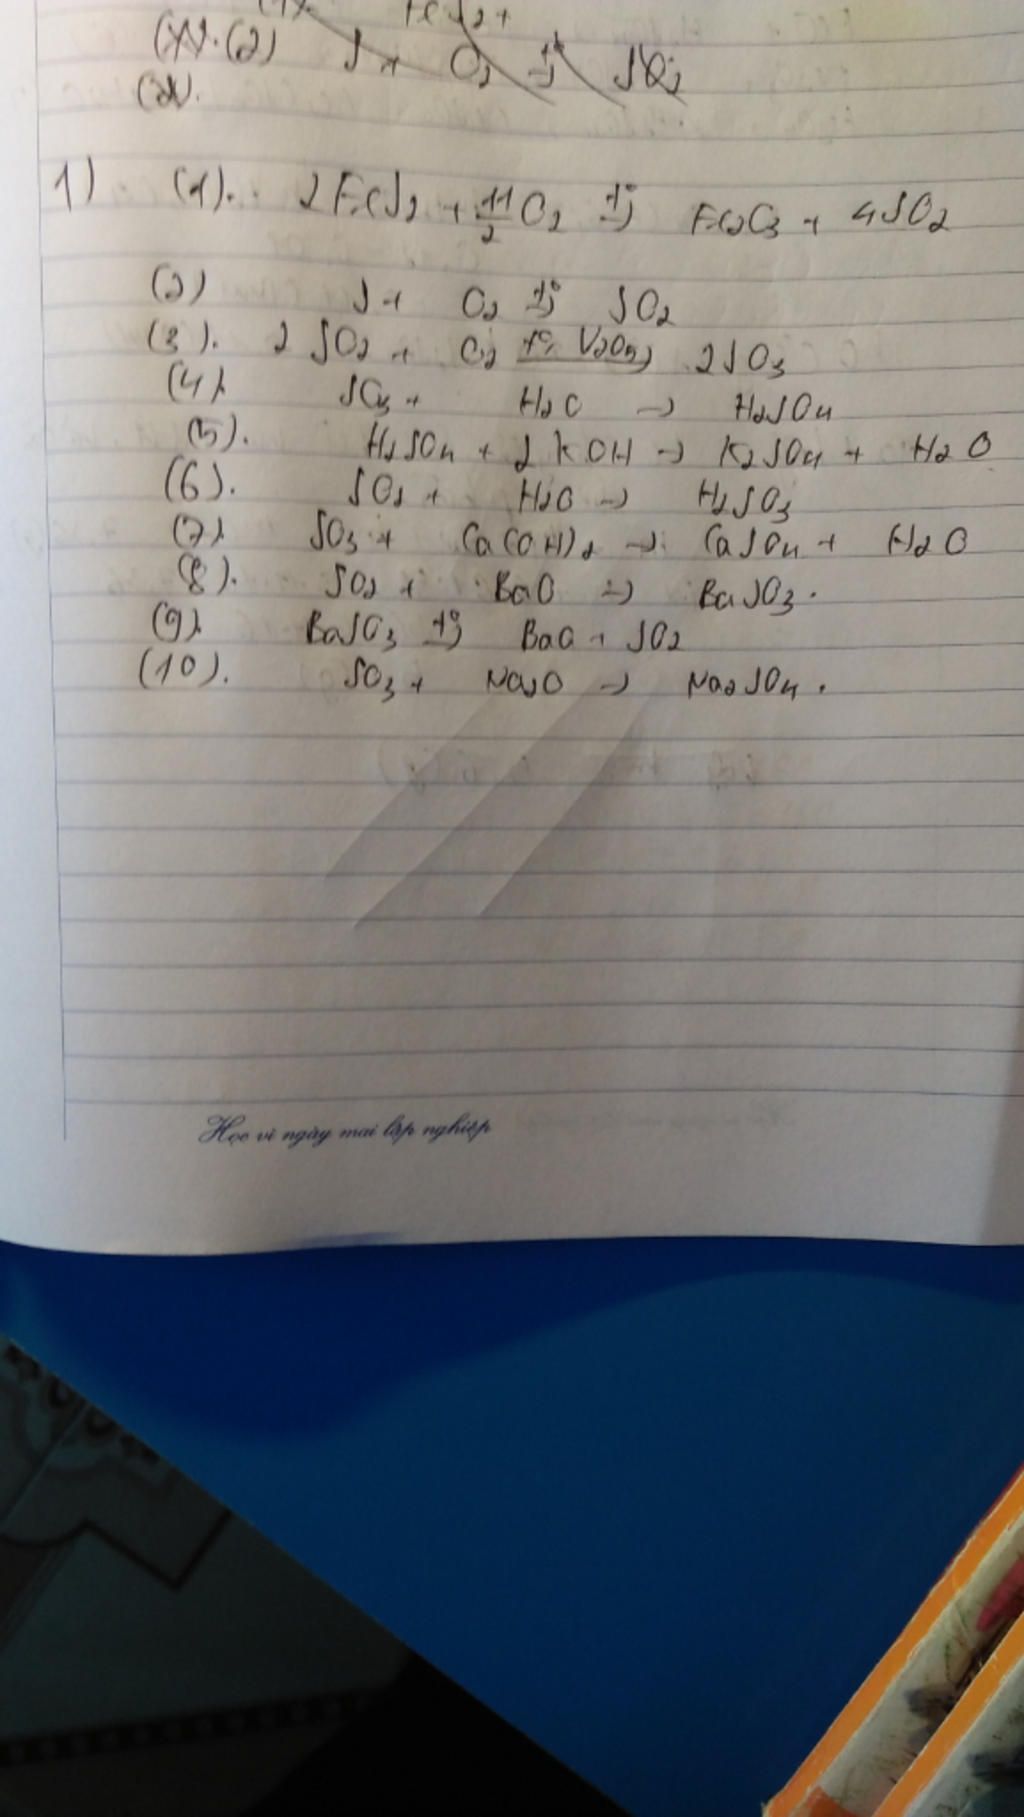 (2) S + O2 t° → SO2
1) (1). 2FeS2 + 11/2 O2 t° → Fe2O3 + 4SO2
(2) S + O2 t° → SO2
(3). 2SO2 + O2 t°, V2O5 → 2SO3
(4) SO3 + H2O → H2SO4
(5). H2SO4 + 2KOH → K2SO4 + H2O
(6). SO2 + H2O → H2SO3
(7) SO3 + Ca(OH)2 → CaSO4 + H2O
(8). SO2 + BaO → BaSO3.
(9) BaSO3 t° → BaO + SO2
(10). SO3 + Na2O → Na2SO4.
Học vì ngày mai lập nghiệp